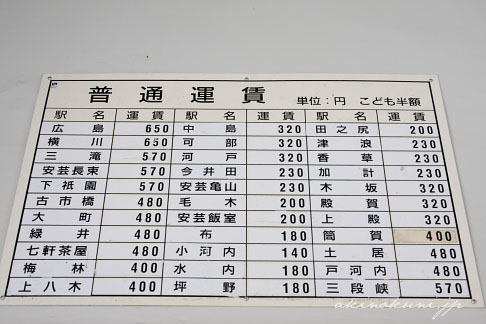 普通運賃 単位：円 こども半額
駅名 運賃 駅名 運賃 駅名 運賃
広島 650 中島 320 田之尻 200
横川 650 可部 320 津浪 230
三滝 570 河戸 320 香草 230
安芸長束 570 今井田 230 加計 230
下祇園 570 安芸亀山 230 木坂 320
古市橋 480 毛木 200 殿賀 320
大町 480 安芸飯室 200 上殿 320
緑井 480 布 180 筒賀 400
七軒茶屋 480 小河内 140 土居 480
梅林 400 水内 180 戸河内 480
上八木 400 坪野 180 三段峡 570
akinokuni.jp